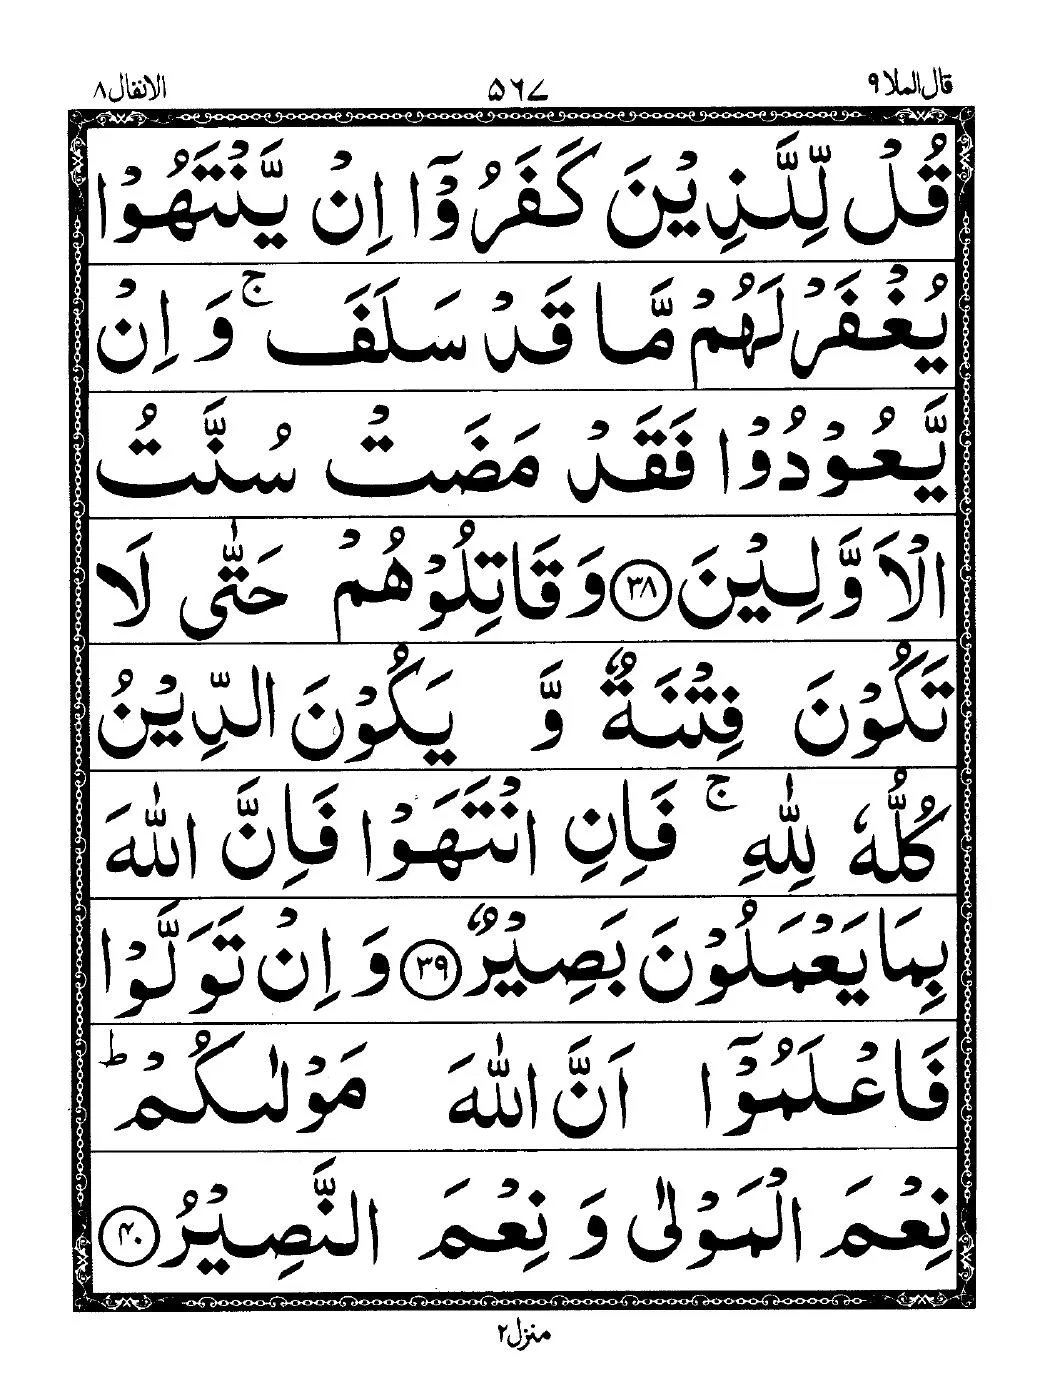 قال الملا ٩ ۵٦۷ الانفال ٨
قُلْ لِّلَّذِيْنَ كَفَرُوْٓا اِنْ يَّنْتَهُوْا
يُغْفَرْ لَهُمْ مَّا قَدْ سَلَفَ ۚ وَ اِنْ
يَّعُوْدُوْا فَقَدْ مَضَتْ سُنَّتُ
الْاَوَّلِيْنَ ﴿٣٨﴾ وَ قَاتِلُوْهُمْ حَتّٰى لَا
تَكُوْنَ فِتْنَةٌ وَّ يَكُوْنَ الدِّيْنُ
كُلُّهٗ لِلّٰهِ ۚ فَاِنِ انْتَهَوْا فَاِنَّ اللّٰهَ
بِمَا يَعْمَلُوْنَ بَصِيْرٌ ﴿٣٩﴾ وَ اِنْ تَوَلَّوْا
فَاعْلَمُوْٓا اَنَّ اللّٰهَ مَوْلٰىكُمْ ؕ
نِعْمَ الْمَوْلٰى وَ نِعْمَ النَّصِيْرُ ﴿۴۰﴾
منزل ٢